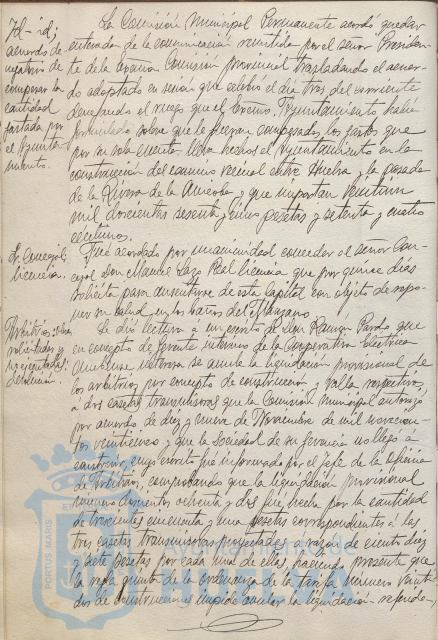 La Comisión Municipal Permanente acordó quedar
enterada de la comunicación remitida por el señor Presiden-
te de la Excma Comisión provincial trasladando el acuer-
do adoptado en sesión que celebró el día tres del corriente
denegando el ruego que el Excmo. Ayuntamiento había
formulado sobre que le fueran compensados los gastos que
por su sola cuenta lleva hechos el Ayuntamiento en la
construcción del camino vecinal entre Huelva y la posada
de la Ribera de la Nicoba y que importan veintiun
mil doscientas sesenta y cinco pesetas y setenta y cuatro
céntimos.
Id-id:
acuerdo de-
negatorio de
compensar la
cantidad
gastada por
el Ayunta-
miento.
Sr. Concejal:
licencia.
Fué acordado por unanimidad conceder al señor Con-
cejal Don Manuel Lazo Real licencia que por quince días
solicita para ausentarse de esta Capital con objeto de repo-
ner su salud en los baños del Manzano.
Arbitrios: sobre
solicitados y
Se dió lectura a un escrito de Don Ramón Pardo que
en concepto de Gerente interino de la Cooperativa Eléctrica
Onubense interesa se anule la liquidación provisional de
los arbitrios por concepto de construcción y valla respectivos
a dos casetas transmisoras que la Comisión Municipal autorizó
por acuerdo de diez y nueve de Noviembre de mil novecien-
tos veintinueve y que la Sociedad de su gerencia no llegó a
construir, cuyo escrito fué informado por el Jefe de la Oficina
de Arbitrios, comprobando que la liquidación provisional
número ochenta y dos fué hecha por la cantidad
de trescientas cincuenta y una pesetas correspondientes a las
tres casetas transmisoras proyectadas a razón de ciento diez
y siete pesetas por cada una de ellas, haciendo presente que
la regla quinta de la ordenanza de la tarifa número veinti-
dos de construcciones impide anular la liquidación
PORTUS MARIS
Ayuntamiento de
HUELVA